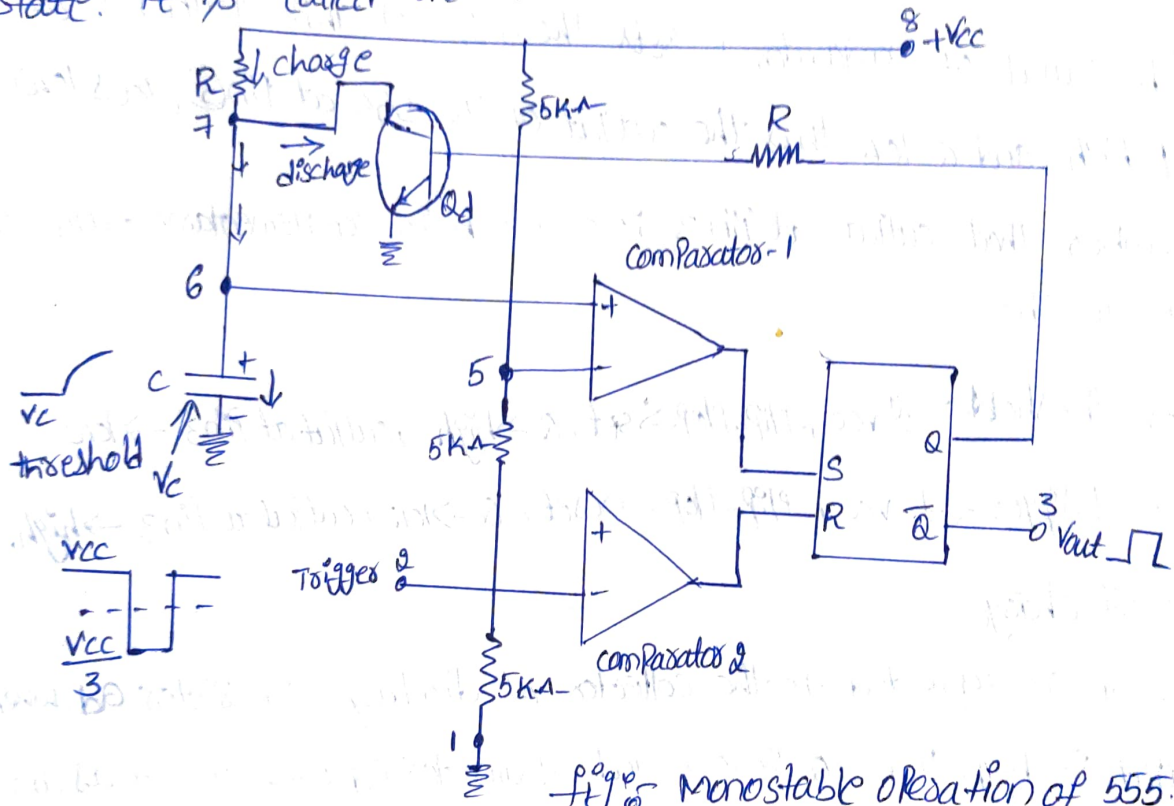 state. It is called
8
+Vcc
R
charge
5KΩ
R
7
discharge
Qd
comparator-1
6
+
-
C
+
-
5
Vc
threshold
Vc
5KΩ
S
Q
R
Q̅
3
Vout
Vcc
Trigger 2
+
-
Vcc
3
comparator 2
5KΩ
1
fig:- Monostable operation of 555